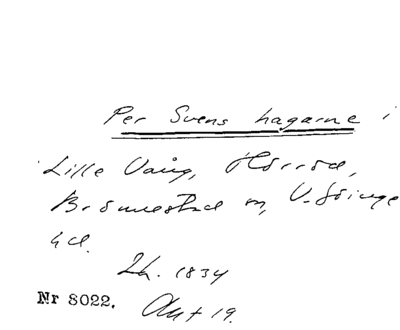 Per Svens hagarne i
Lille Vång, Hörröd,
Brönnestad sn, V. Göinge
hd.
Lh. 1834
Nr 8022. Akt 19.